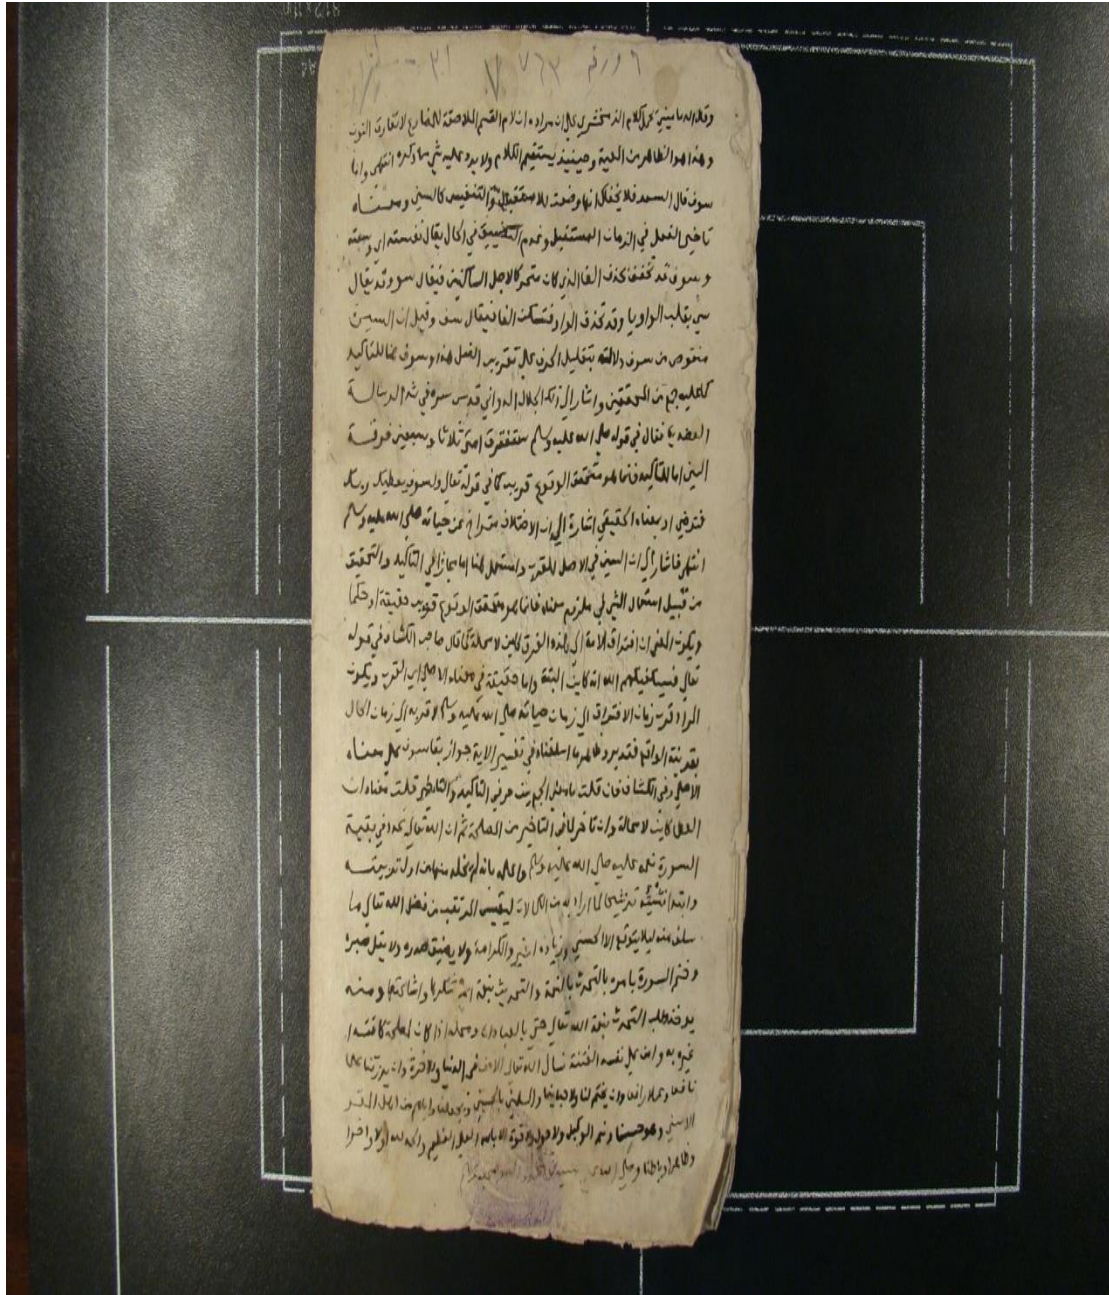 ٦ ورقم ٧٦٢
وقال الدماميني يحمل كلام الزمخشري على ان مراده ان لام القسم الملاصقة للمضارع لا تفارق النون
وهذا هو الظاهر من العبارة وحينئذ يستقيم الكلام ولا يرد عليه شي مما ذكره انتهى واما
سوف قال السعد فلا يخفى انها وضعت للاستقبال والتنفيس كالسين ومعناه
تاخير الفعل في الزمان المستقبل وعدم التضييق في الحال يقال نفسته اي وسعته
وسوف قد تخفف بحذف الفا الذي كان متحركا لاجل الساكنين فيقال سو وقد يقال
سي بقلب الواو يا وقد تحذف الواو فتسكن الفا فيقال سف وقيل ان السين
منقوص من سوف دلالة بتقليل الحرف على تقريب الفعل هذا وسوف هنا للتاكيد
كما عليه جمع من المحققين واشار الى ذلك الجلال الدواني قدس سره في شرح الرسالة
العضدية فقال في قوله صلى الله عليه وسلم ستفترق امتي ثلاثا وسبعين فرقة
السين اما للتاكيد فانما هو متحقق الوقوع قريب كما في قوله تعالى ولسوف يعطيك ربك
فترضى او بمعناه الحقيقي اشارة الى ان الاختلاف متراخ عن حياته صلى الله عليه وسلم
انتهى فاشار الى ان السين في الاصل للقرب واستعمل هنا اما مجازا في التاكيد والتحقيق
من قبيل استعمال الشي في ملزوم معناه فانما هو متحقق الوقوع قريب حقيقة او حكما
ويكون المعنى ان افتراق الامة الى هذه الفرق كاين لا محالة كما قال صاحب الكشاف في قوله
تعالى فسيكفيكهم الله انه كاين البتة واما حقيقة في معناه الاصلي اي القرب ويكون
المراد قرب زمان الافتراق الى زمان حياته صلى الله عليه وسلم لا قربه الى زمان الحال
بقرينة الواقع فتدبر وظاهر ما اسلفناه في تفسير الاية جواز بقا سوف على معناه
الاصلي وفي الكشاف فان قلت ما معنى الجمع بين حرفي التاكيد والتاخير قلت معناه ان
العطا كاين لا محالة وان تاخر لما في التاخير من المصلحة ثم ان الله تعالى عدد في بقية
السورة نعمه عليه صلى الله عليه وسلم واعلمه بانه لم يخله منها من اول تربيته
وابتدا نشئه ترشيحا لما اراد به من الكمالات ليقيس المترقب من فضل الله تعالى ما
سلف منه ليلا يتوقع الا الحسنى وزيادة الخير والكرامة ولا يضيق صدره ولا يقل صبره
وختم السورة بامره بالتحدث بالنعمة والتحديث بنعمة الله شكرها واشاعتها ومنه
يوخذ طلب التحدث بنعمة الله تعالى حتى بالعبادات ومحله اذا كان لمصلحة كاقتدا
غيره به وامن على نفسه الفتنة نسال الله تعالى في الدنيا والاخرة وان يرزقنا علما
نافعا وعملا رافعا وان يختم لنا ولاحبابنا والمسلمين بالحسنى ويجعلنا واياهم من اهل المقر
الاسنى وهو حسبنا ونعم الوكيل ولا حول ولا قوة الا بالله العلي العظيم والحمد لله اولا واخرا
وظاهرا وباطنا وصلى الله على